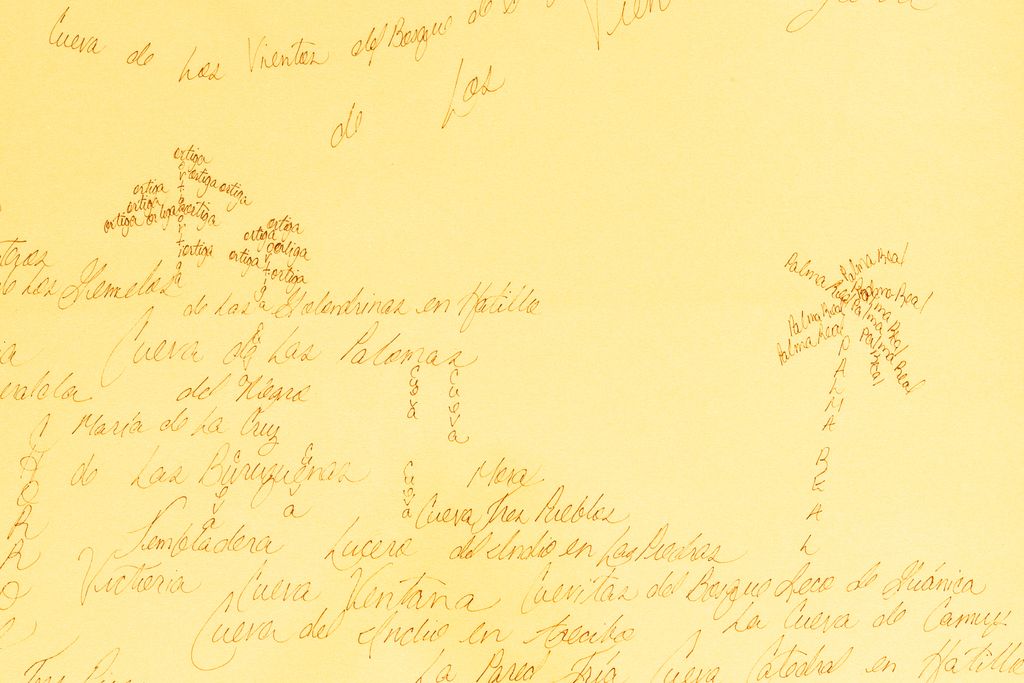 Cueva de Los Vientos del Bosque de
Vien
de Los
ortiga
ortiga
ortiga ortiga
ortiga
ortiga
ortiga ortiga ortiga
ortiga
ortiga
ortiga
ortiga
ortiga
ortiga
ortiga
Palma Real
Palma Real
Palma Real
Palma Real
Palma Real
Palma Real
Palma Real
Palma Real
PALMA REAL
de Los Gemelos
de Las Golondrinas en Hatillo
Cueva de Las Palomas
del Negro
Cueva
Cueva
María de La Cruz
de Las Buruquenas
Cueva
Mora
Cueva Tres Pueblos
Sembladera Lucero del Indio en Las Piedras
Victoria Cueva Ventana Cuevitas del Bosque Seco de Guánica
Cueva del Indio en Arecibo La Cueva de Camuy
La Pared Fría Cueva Catedral en Hatillo